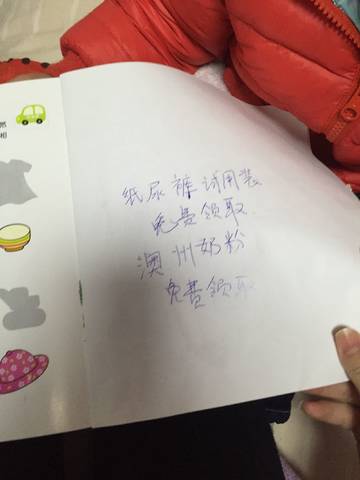 然
相
纸尿裤试用装
免费领取
澳州奶粉
免费领取